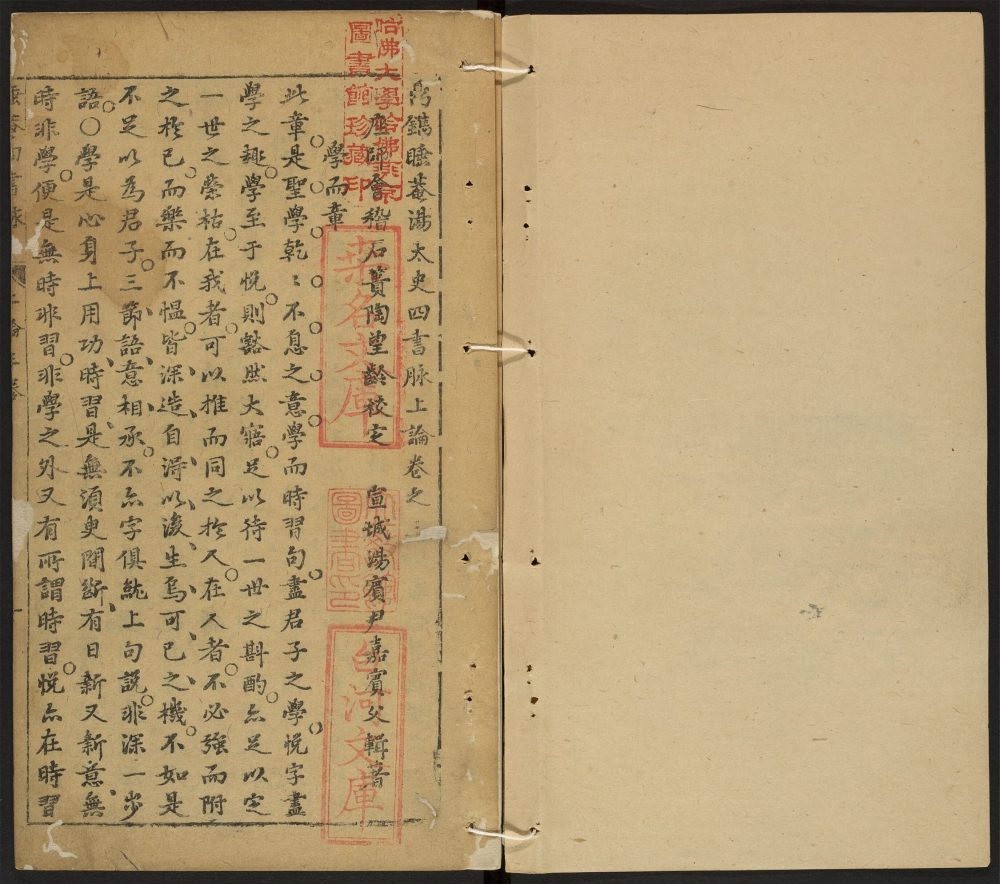 鐫睡菴湯太史四書脉上論卷之
座師會稽石簣陶望齡校定 宣城湯賓尹嘉賓父輯著
學而章
此章是聖學乾〻不息之意學而時習句盡君子之學悅字盡
學之趣學至于悅則豁然大寤足以待一世之斟酌亦足以定
一世之榮枯在我者可以推而同之於人在人者不必強而附
之於己而樂而不愠皆深造自得以後生烏可已之機不如是
不足以為君子三節語意相承不亦字俱紞上句說非深一步
語〇學是心身上用功時習是無須臾間斷有日新又新意無
時非學便是無時非習非學之外又有所謂時習悅亦在時習
哈佛大學哈佛燕京
圖書館珍藏印
圖書
文庫